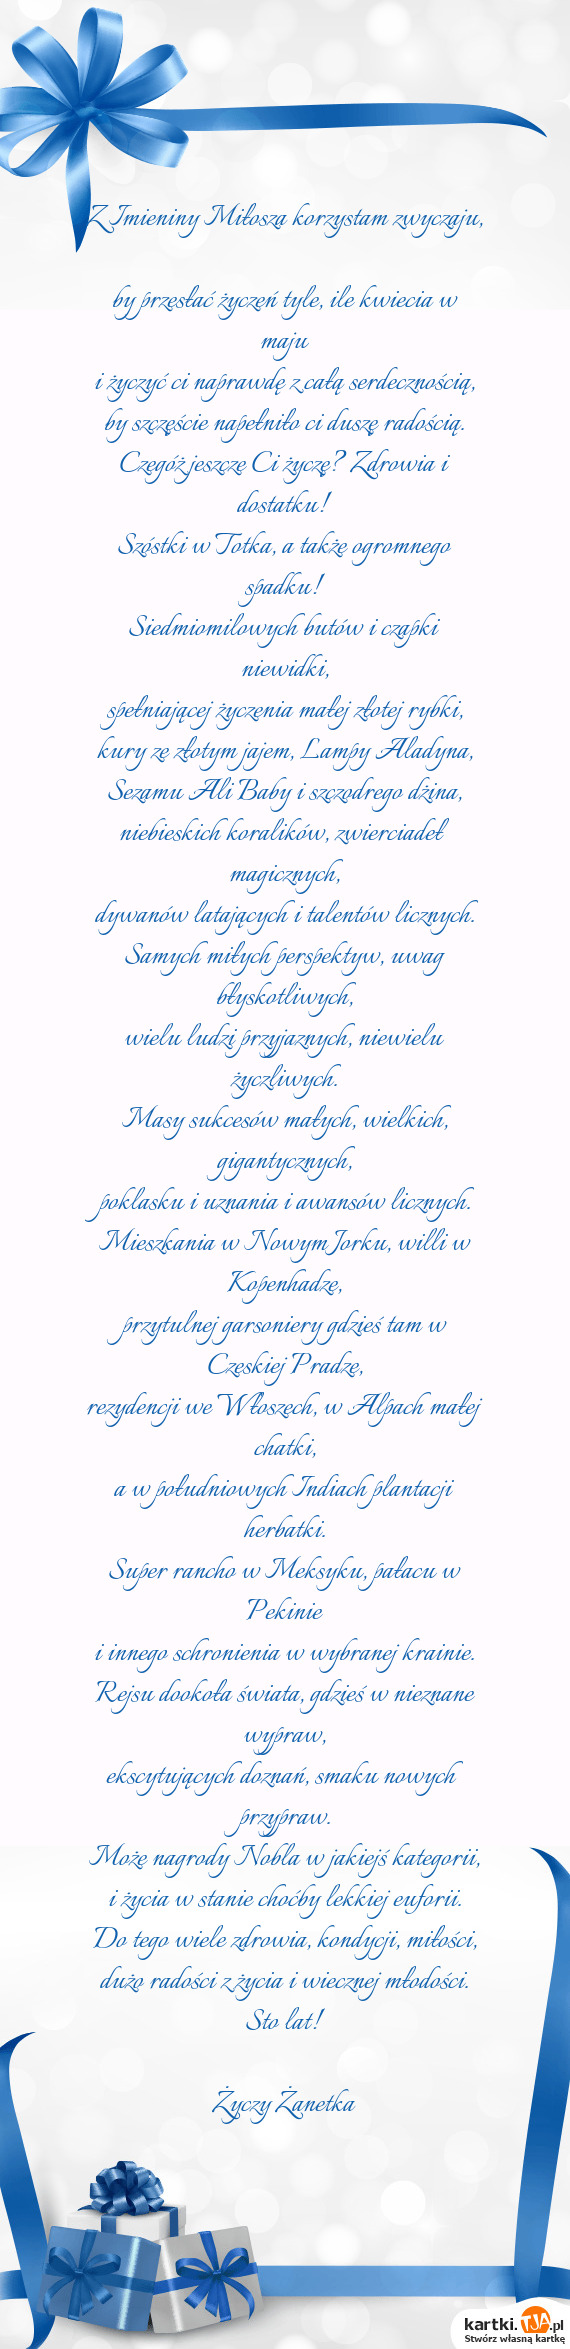 Z Imieniny Miłosza korzystam zwyczaju,
by przesłać życzeń tyle, ile kwiecia w
maju
i życzyć ci naprawdę z całą serdecznością,
by szczęście napełniło ci duszę radością.
Czegóż jeszcze Ci życzę? Zdrowia i
dostatku!
Szóstki w Totka, a także ogromnego
spadku!
Siedmiomilowych butów i czapki
niewidki,
spełniającej życzenia małej złotej rybki,
kury ze złotym jajem, Lampy Aladyna,
Sezamu Ali Baby i szczodrego dżina,
niebieskich koralików, zwierciadeł
magicznych,
dywanów latających i talentów licznych.
Samych miłych perspektyw, uwag
błyskotliwych,
wielu ludzi przyjaznych, niewielu
życzliwych.
Masy sukcesów małych, wielkich,
gigantycznych,
poklasku i uznania i awansów licznych.
Mieszkania w Nowym Jorku, willi w
Kopenhadze,
przytulnej garsoniery gdzieś tam w
Czeskiej Pradze,
rezydencji we Włoszech, w Alpach małej
chatki,
a w południowych Indiach plantacji
herbatki.
Super rancho w Meksyku, pałacu w
Pekinie
i innego schronienia w wybranej krainie.
Rejsu dookoła świata, gdzieś w nieznane
wypraw,
ekscytujących doznań, smaku nowych
przypraw.
Może nagrody Nobla w jakiejś kategorii,
i życia w stanie choćby lekkiej euforii.
Do tego wiele zdrowia, kondycji, miłości,
dużo radości z życia i wiecznej młodości.
Sto lat!
Życzy Żanetka
kartki.TJA.pl
Stwórz własną kartkę